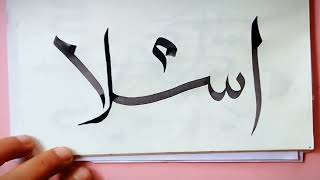 اسلا